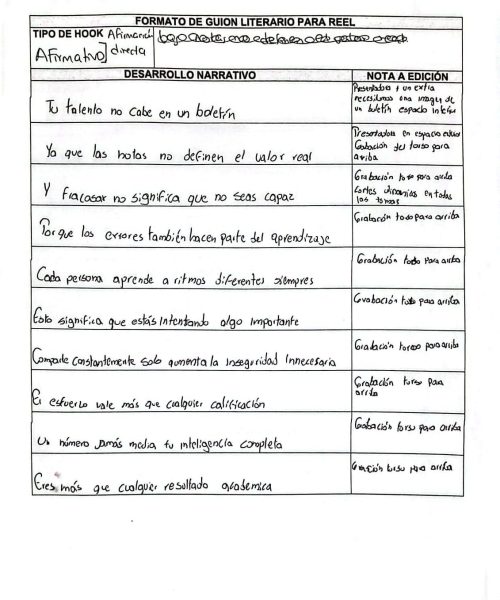 FORMATO DE GUION LITERARIO PARA REEL
TIPO DE HOOK Afirmand
Afirmativo] directa
DESARROLLO NARRATIVO
NOTA A EDICIÓN
Tu talento no cabe en un boletín
Presentadora + un extra
necesitamos una imagen de
un boletín espacio interior
Ya que las notas no definen el valor real
Presentadora en espacio
Grabación del torso para
arriba
Y fracasar no significa que no seas capaz
Grabación torso para arriba
cortes dinamicos en todas
las tomas
Por que los errores también hacen parte del aprendizaje
Grabación todo para arriba
Cada persona aprende a ritmos diferentes siempres
Grabación todo para arriba
Esto significa que estás intentando algo importante
Grabación todo para arriba
Comparte constantemente solo aumenta la inseguridad innecesaria
Grabación torso para arriba
El esfuerzo vale más que cualquier calificación
Grabación torso para
arriba
Un número jamás media tu inteligencia completa
Grabación torso para arriba
Eres más que cualquier resultado academica
Grabación torso para arriba